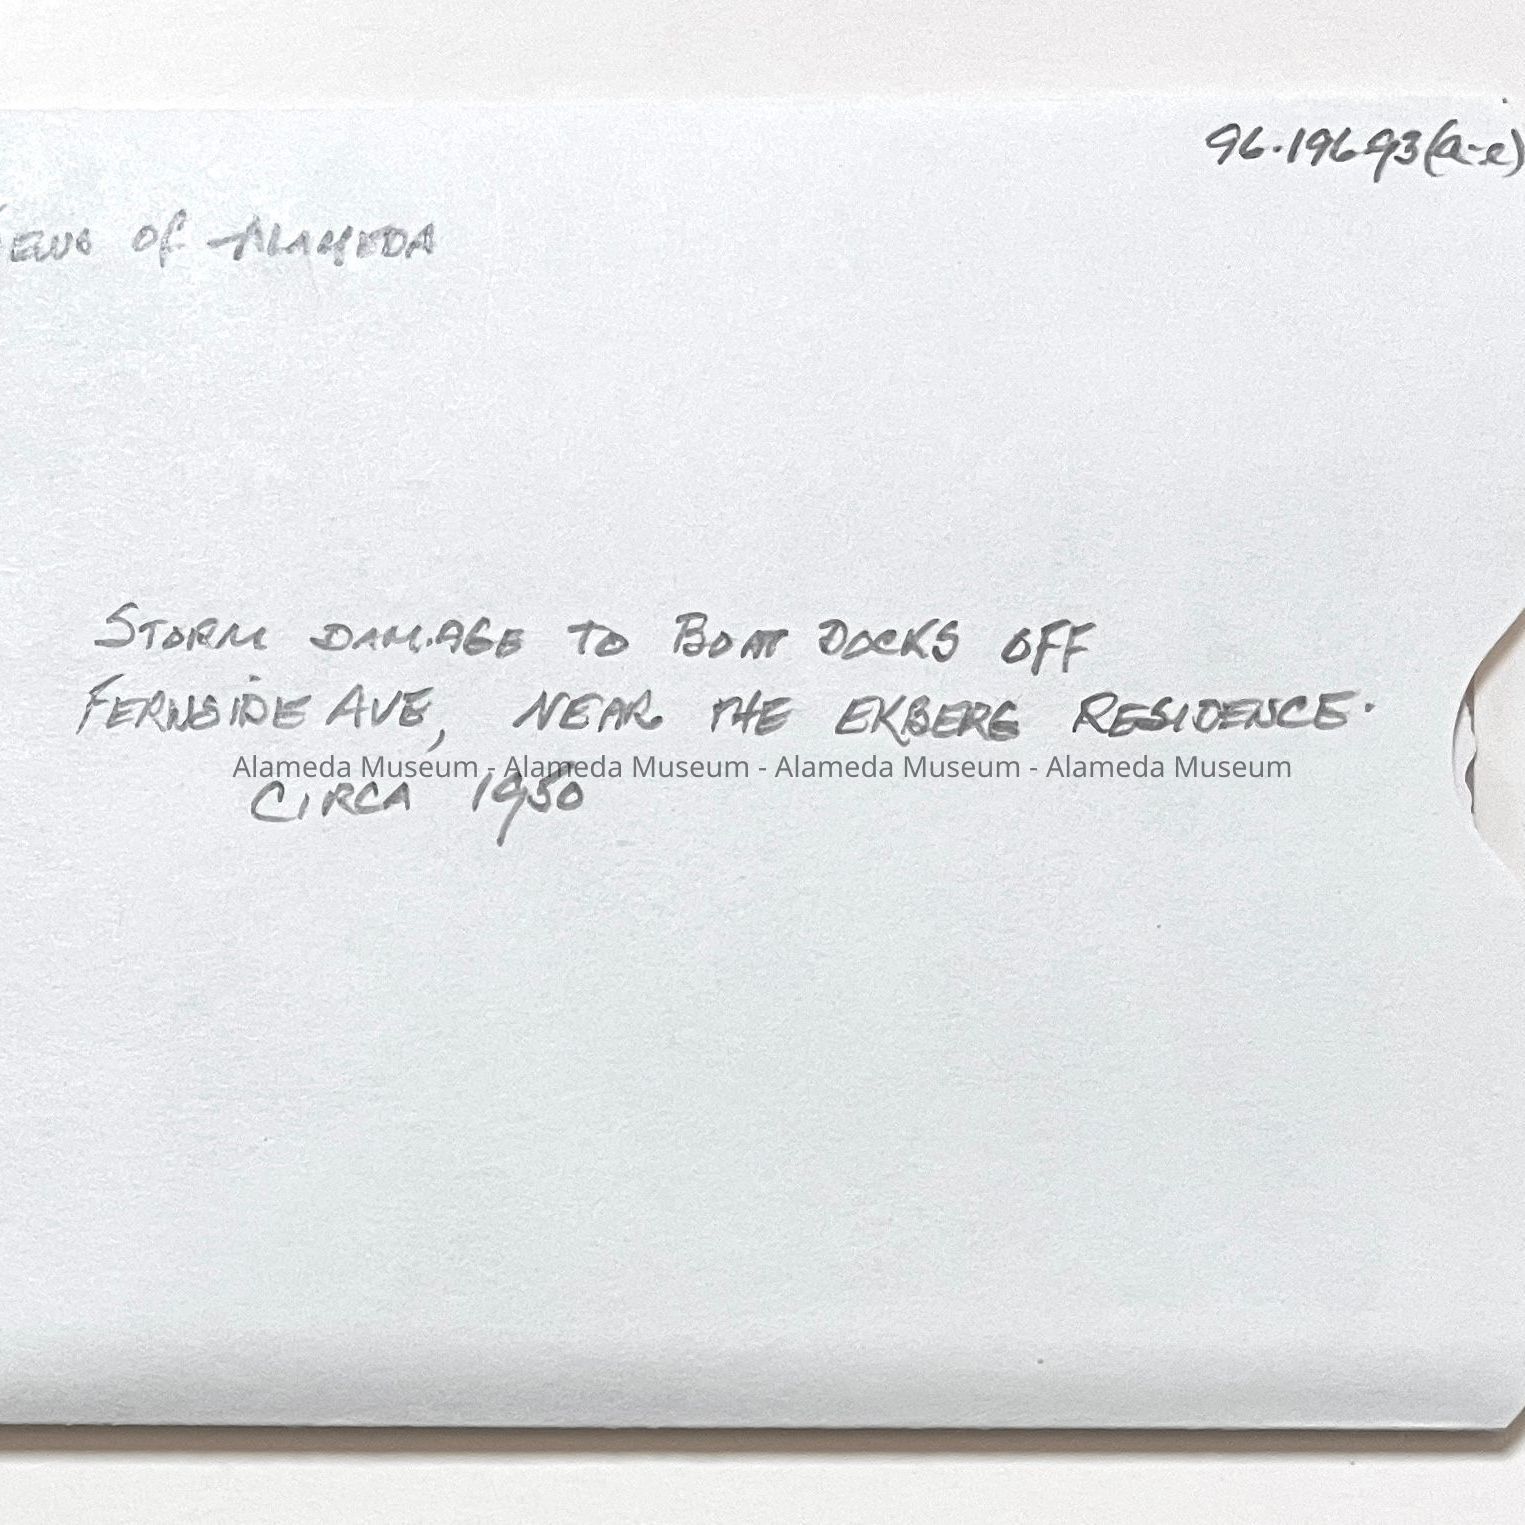 96.19693(a-e)
iews of Alameda
Storm damage to Boat Docks off
Fernside Ave, near the Ekberg Residence.
Alameda Museum - Alameda Museum - Alameda Museum - Alameda Museum
Circa 1950